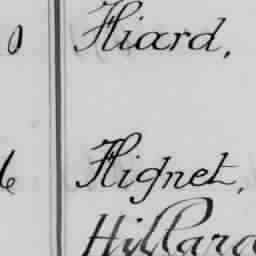 0 Hiard.
6 Hignet.
Hillard